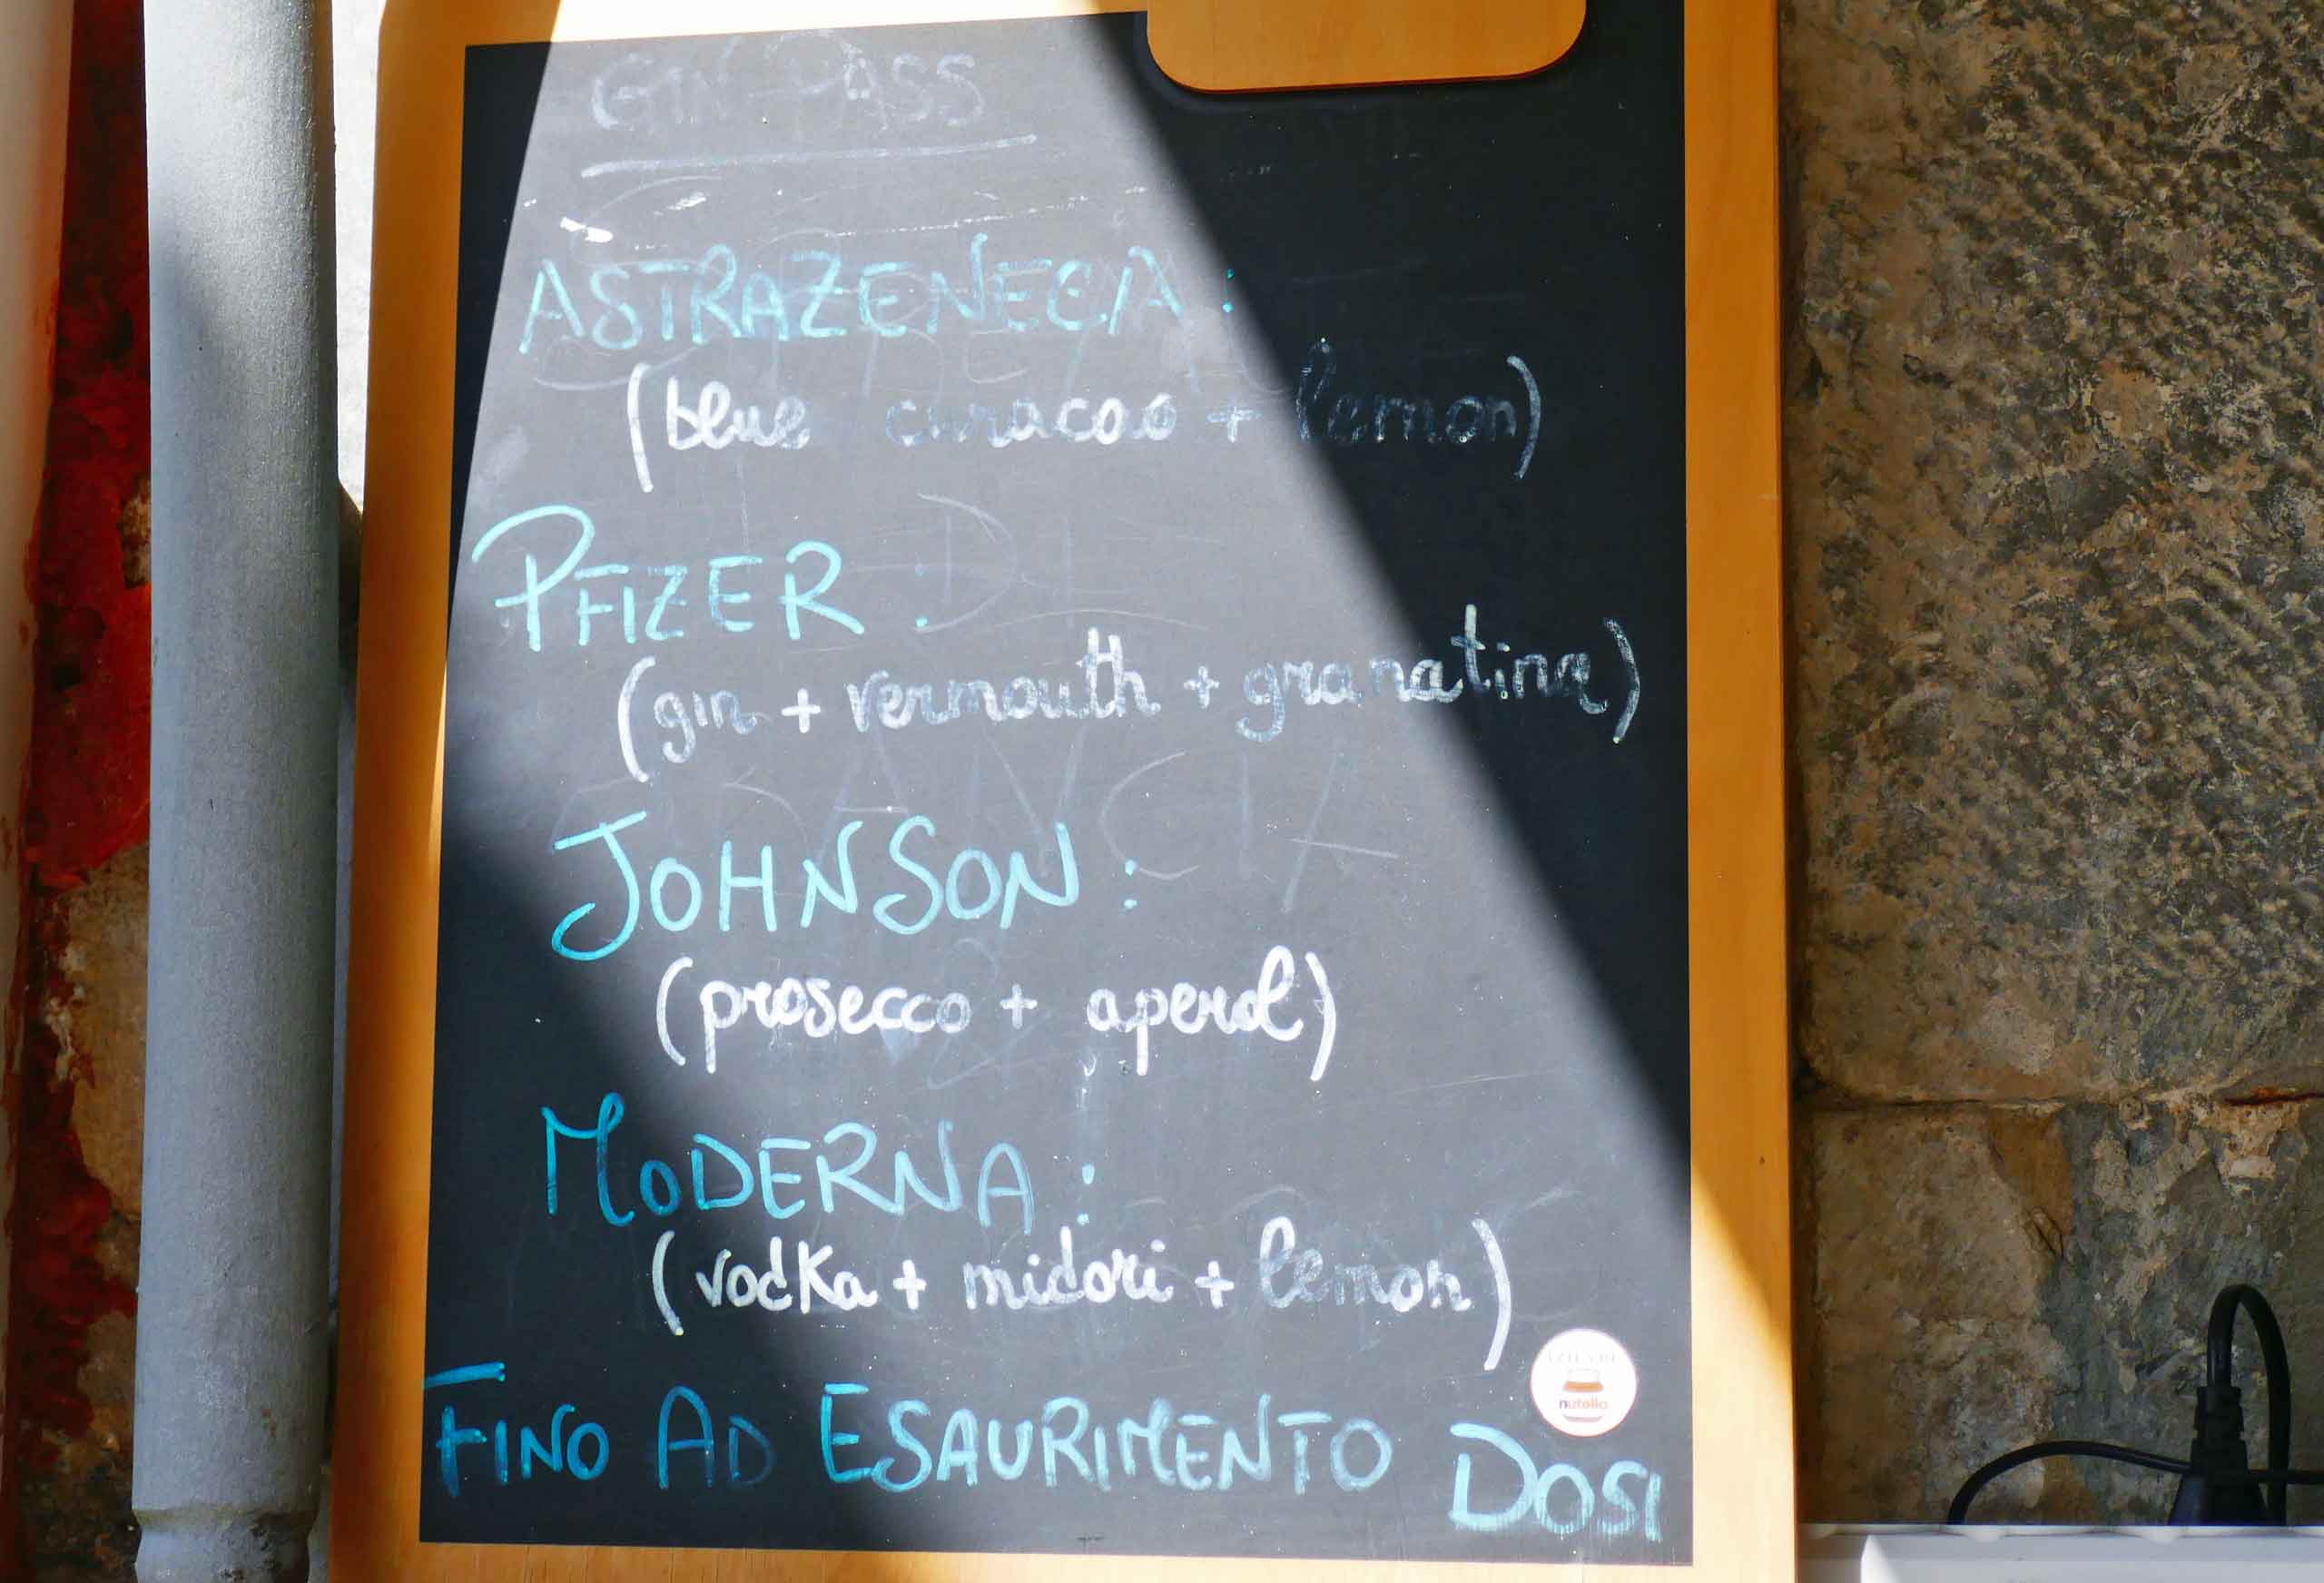 GIN PASS
ASTRAZENECA:
(blue curacao + lemon)
PFIZER:
(gin + vermouth + granatina)
JOHNSON:
(prosecco + aperol)
MODERNA:
(vodka + midori + lemon)
FINO AD ESAURIMENTO DOSI
nutella